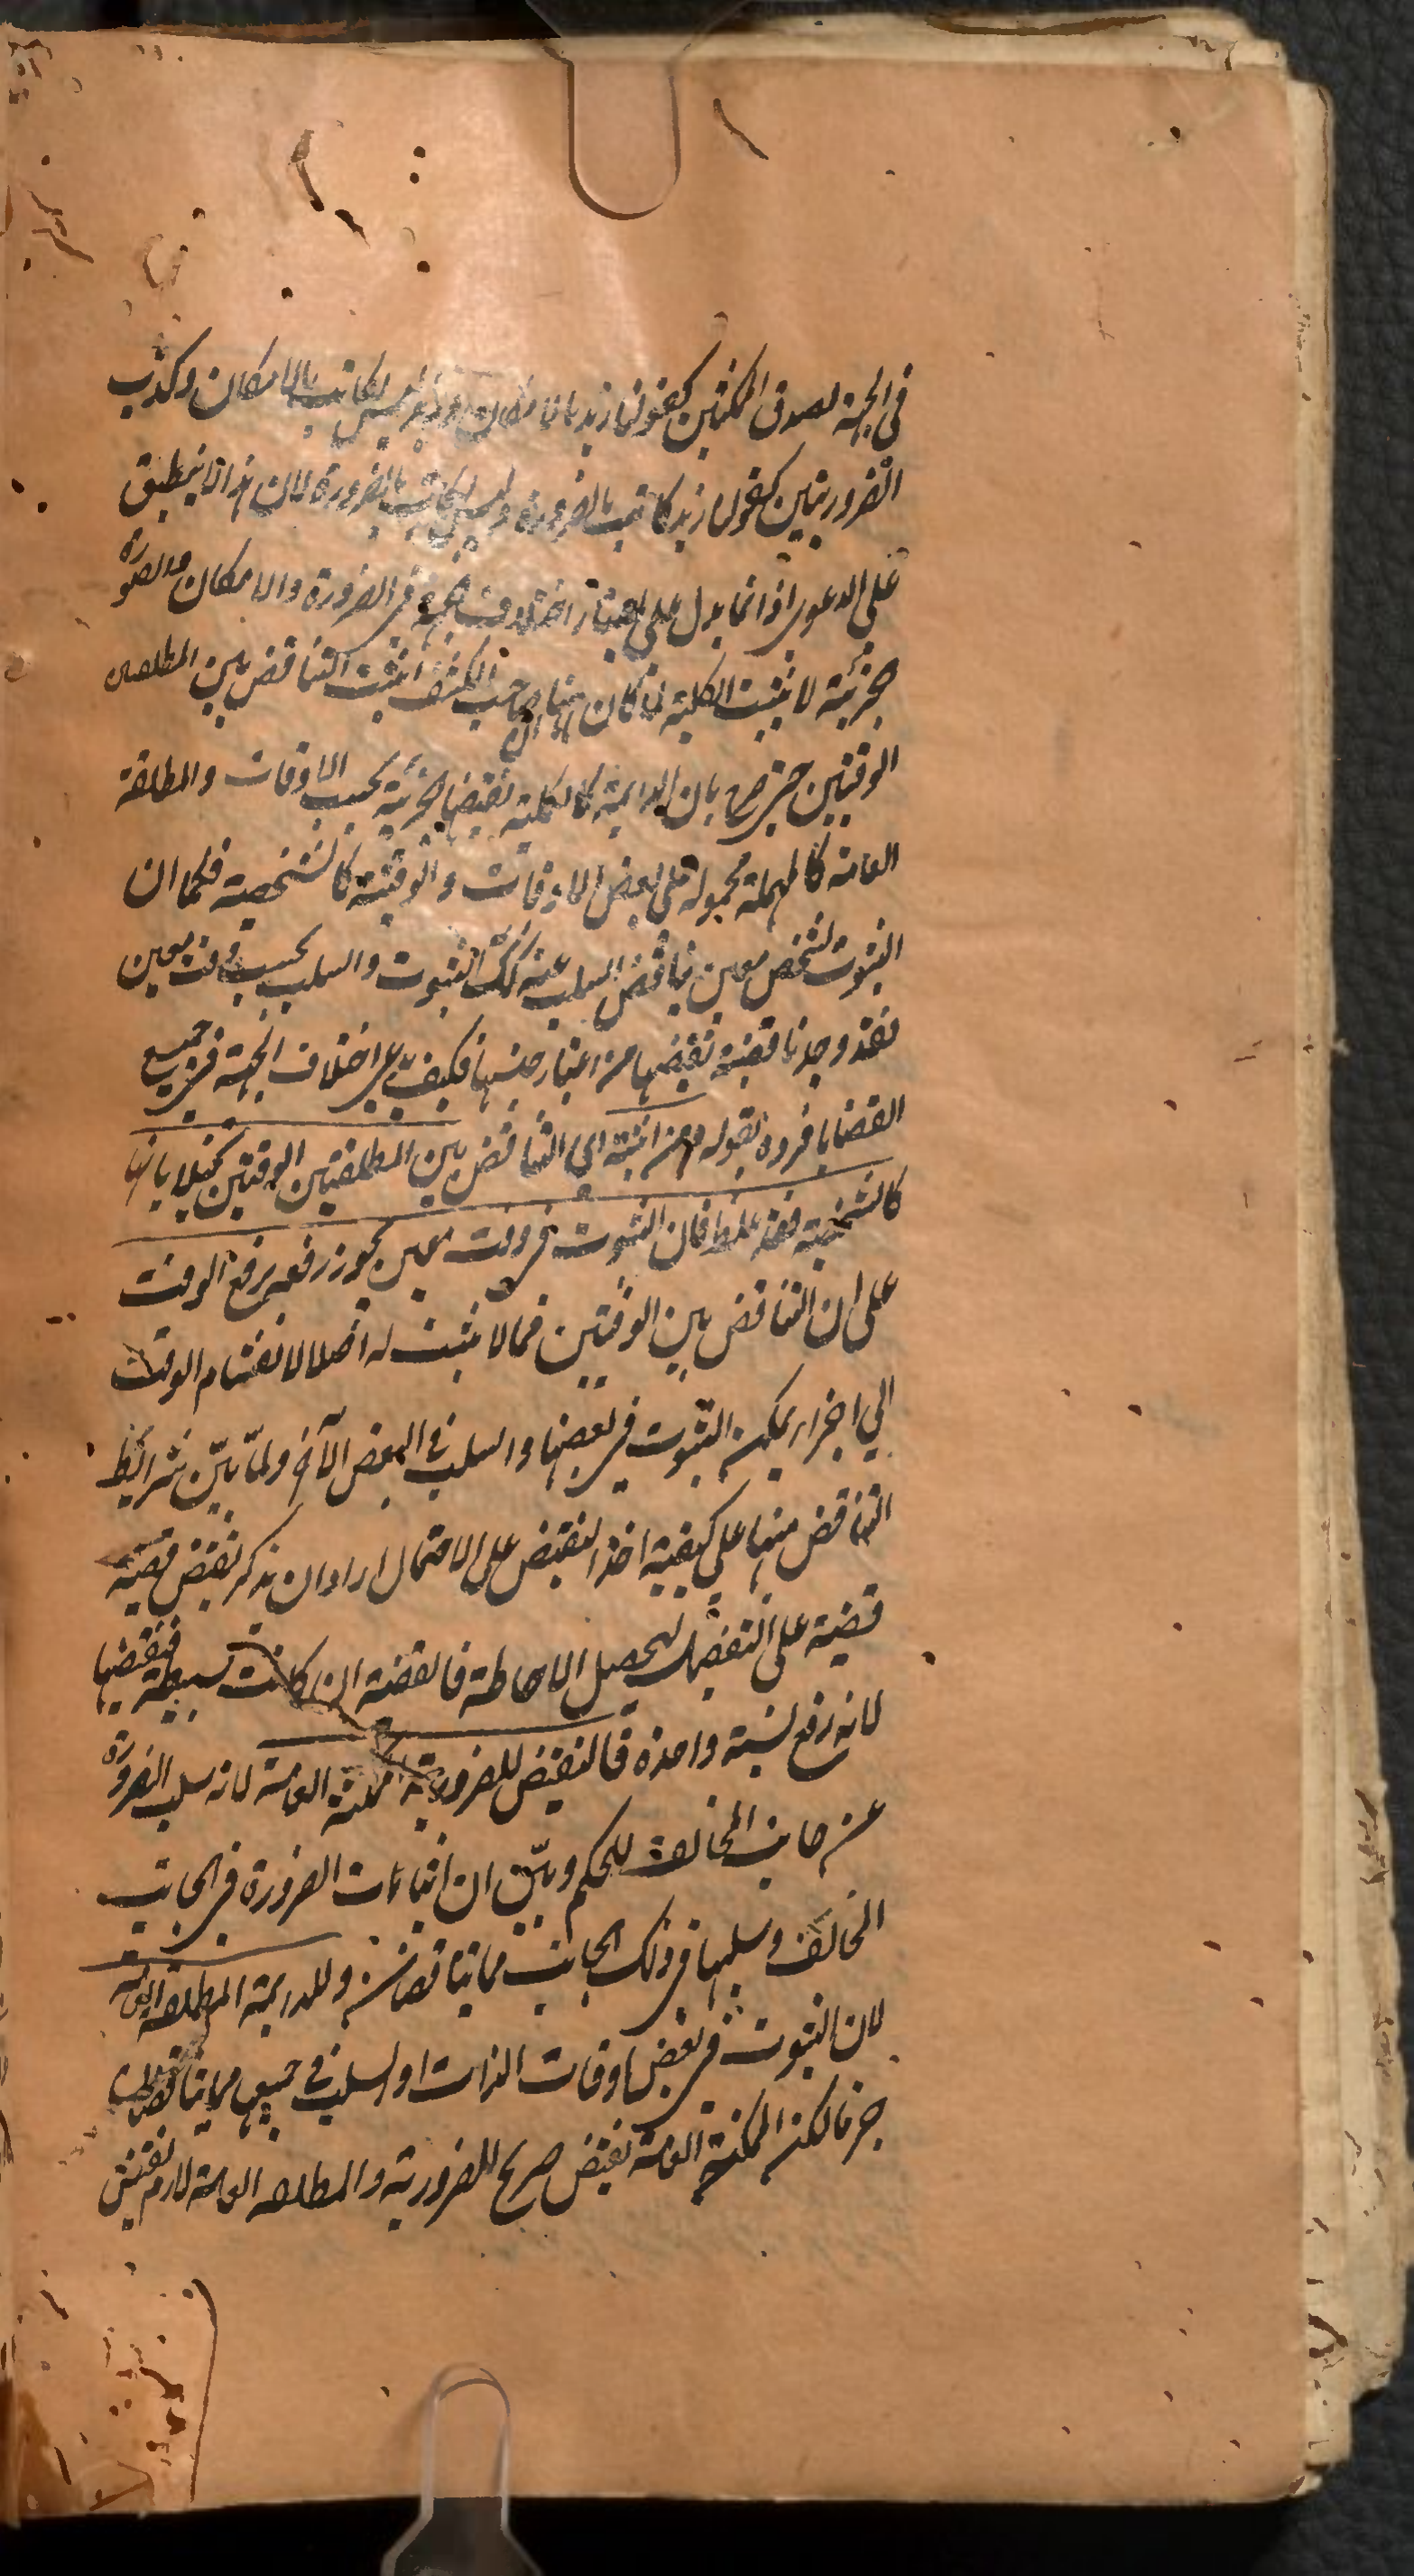 فى الجهة لصدق الممكنتين كقولنا زيد بالامكان وزيد ليس بكاتب بالامكان وكذب
الضروريتين كقولنا زيد كاتب بالضرورة وليس بكاتب بالضرورة لان هذا لا ينطبق
على الدعوى اذ انما يدل على اعتبار اختلاف الجهة فى الضرورة والامكان والصورة
جزئية لا تثبت الكلية لما كان صاحب الكشف اثبت التناقض بين المطلقتين
الوقتين حيث صرح بان الدايمة كالكلية نقيضها جزئية بحسب الاوقات والمطلقة
العامة كالمهملة محمولة على بعض الاوقات والوقتية كالشخصية فكما ان
الثبوت لشخص معين يناقض السلب عنه كذلك الثبوت والسلب بحسب وقت معين
فقد وجدنا قضية نقيضها من اعتبار جنسها فكيف يدعى اختلاف الجهة فى جميع
القضايا فرده بقوله ومن اثبته اى التناقض بين المطلقتين الوقتين تخيلا بانها
كالشخصية فقد غلط فان الثبوت فى وقت معين يجوز رفعه برفع الوقت
على ان التناقض بين الوقتين مما لا يثبت له اصلا لانقسام الوقت
الي اجزاء يمكن الثبوت فى بعضها والسلب فى البعض الآخر ولما بيّن شرايط
التناقض منبها على كيفية اخذ النقيض على الاجمال اراد ان يذكر نقيض قضية
قضية على التفصيل ليحصل الاحاطة فالقضية ان كانت بسيطة فنقيضها
لانه رفع نسبة واحدة فالنقيض للضرورية الممكنة العامة لانه سلب الضرورة
عن جانب المخالف للحكم وبيّن ان اثبات الضرورة فى الجانب
المخالف وسلبها فى ذلك الجانب مما يتناقضان وللدايمة المطلقة العامة
لان الثبوت فى بعض اوقات الذات والسلب فى جميعها مما يتناقضان
جزما لكن الممكنة العامة نقيض صريح للضرورية والمطلقة العامة لازم نقيض